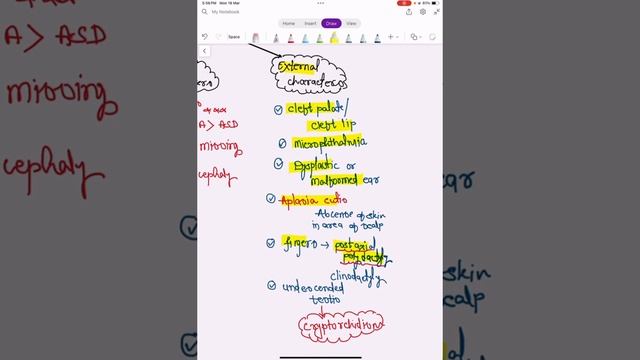 5:56 PM Mon 18 Mar
81%
My Notebook
Home Insert Draw View
Space
External
characters
A > ASD
missing
cephaly
cleft palate/
cleft lip
microphthalmia
Dysplastic or
malformed ear
Aplasia cutis
Absence of skin
in area of scalp
fingers → postaxial
polydactyly
clinodactyly
undescended
testis
cryptorchidism
A > ASD
missing
cephaly
ear
skin
scalp